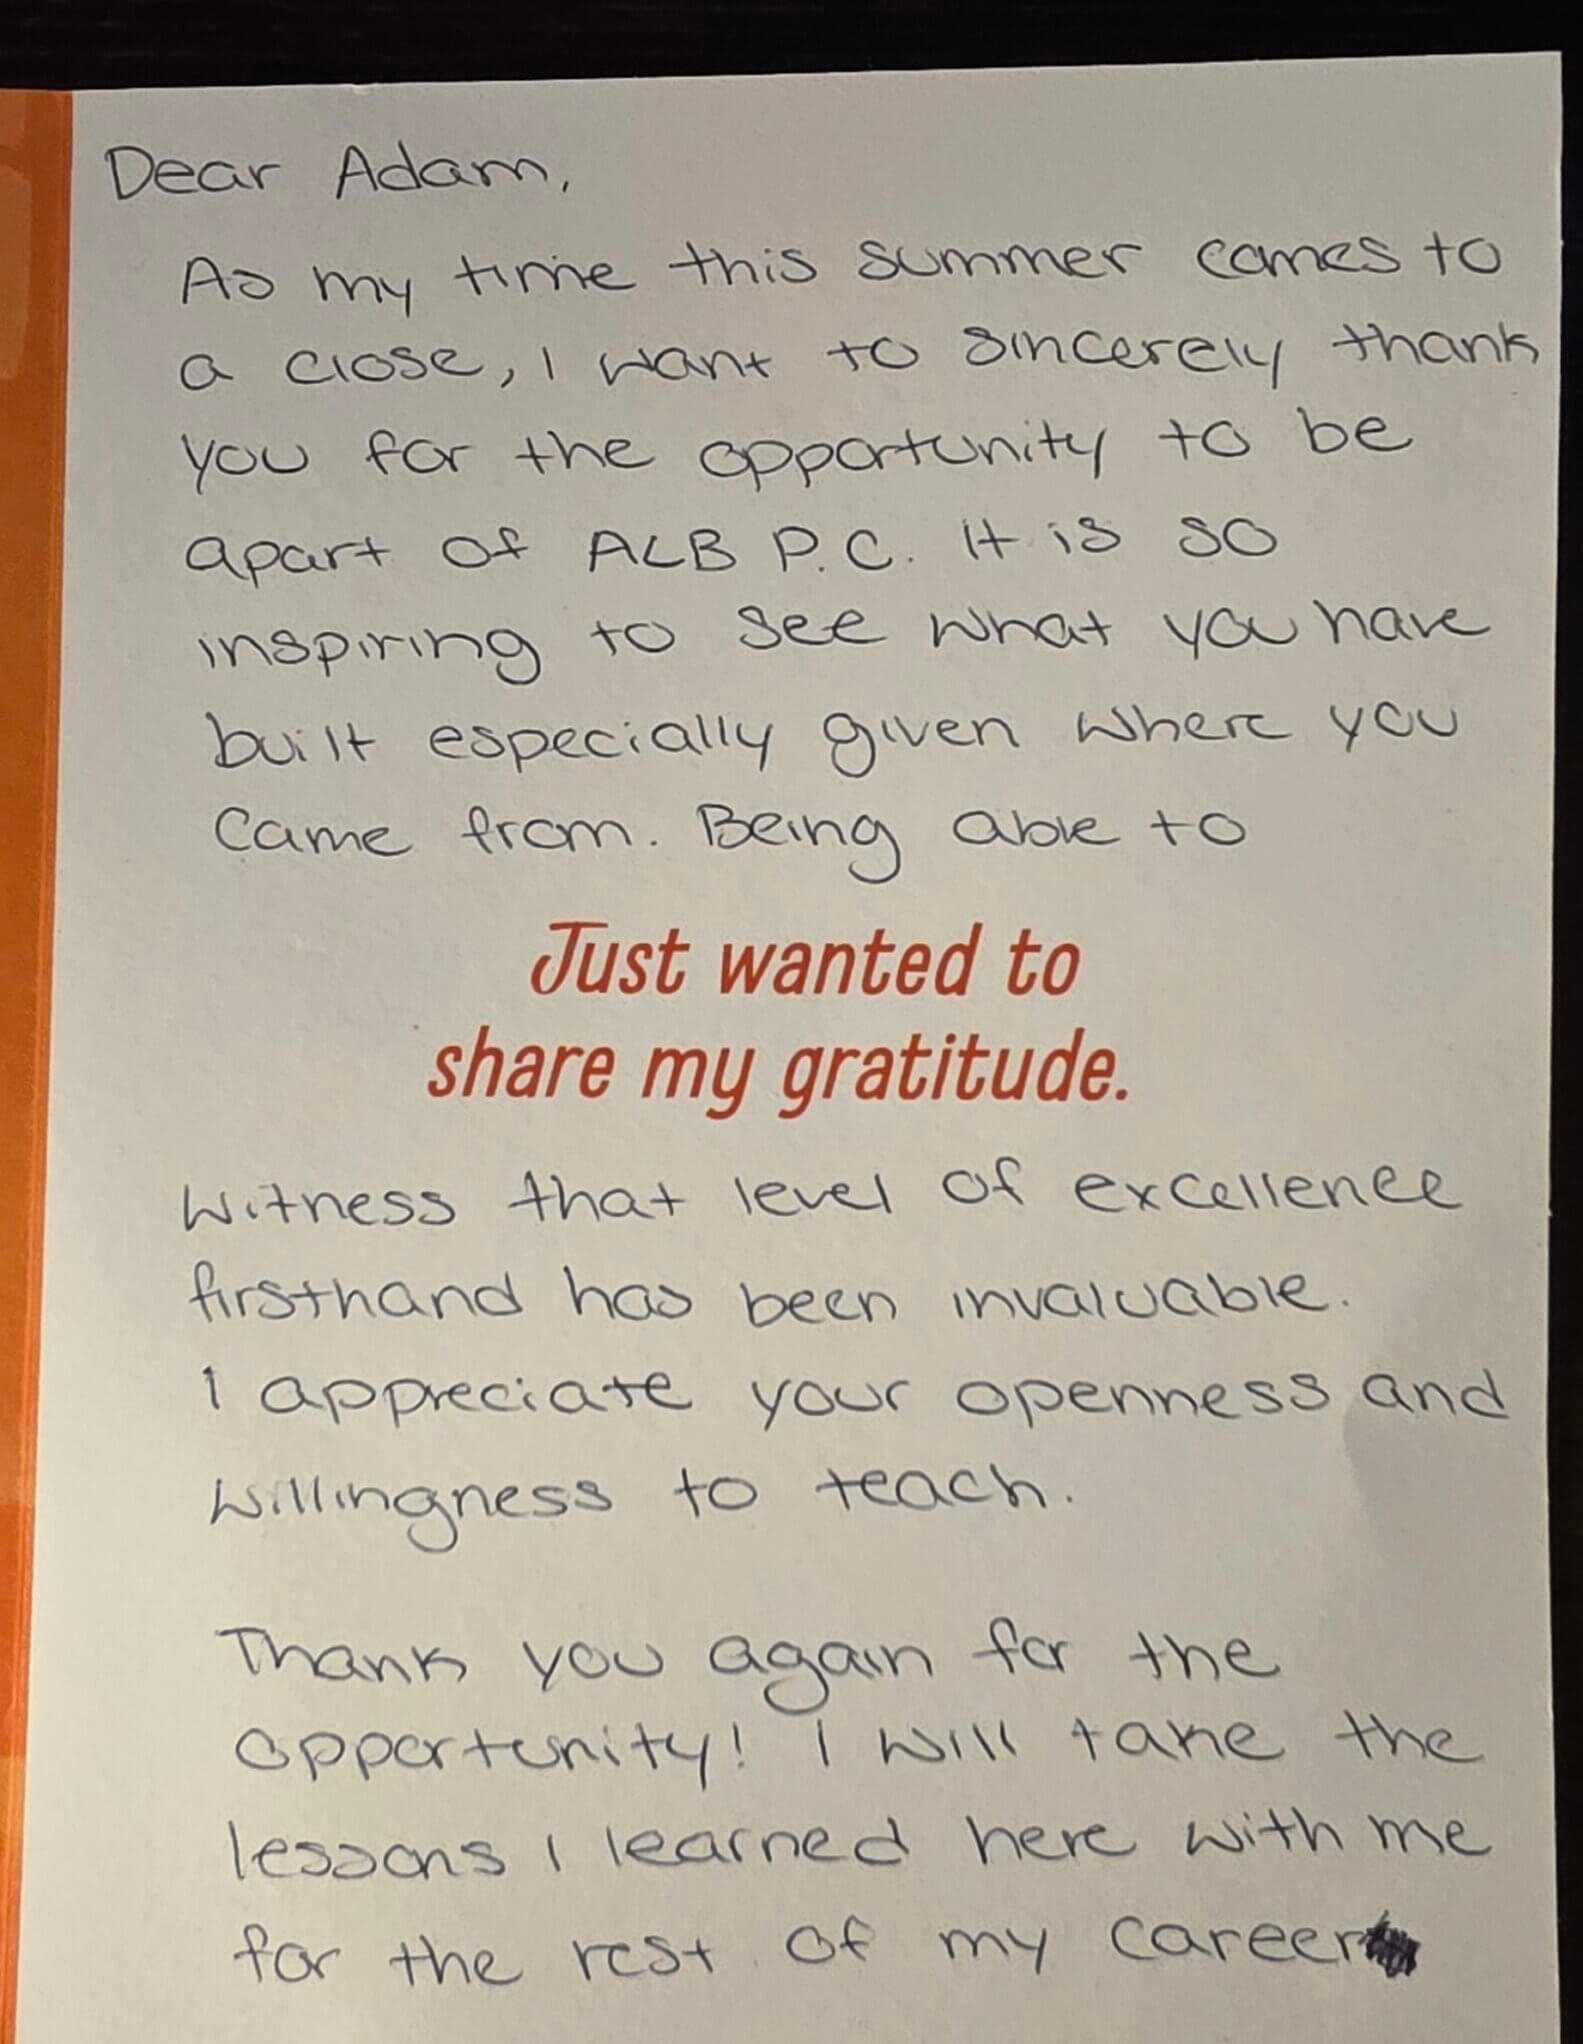 Dear Adam,
As my time this summer comes to
a close, I want to sincerely thank
you for the opportunity to be
apart of ALB P.C. It is so
inspiring to see what you have
built especially given where you
came from. Being able to
Just wanted to
share my gratitude.
witness that level of excellence
firsthand has been invaluable.
I appreciate your openness and
willingness to teach.
Thank you again for the
opportunity! I will take the
lessons I learned here with me
for the rest of my career